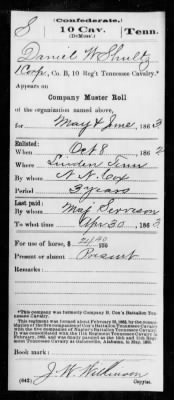 S
(Confederate.)
10 Cav.
(DeMoss'.)
Tenn.
Daniel W Shultz
1 Corp., Co. B, 10 Reg't Tennessee Cavalry.*
Appears on
Company Muster Roll
of the organization named above,
for May & June, 1863
Enlisted:
When Oct 8, 1862
Where Linden Tenn
By whom N. N. Cox
Period 3 years
Last paid:
By whom Maj
To what time Apr 30, 1863
For use of horse, $
Present or absent Present
Remarks:
*This company was formerly Company B, Cox's Battalion Tennessee Cavalry.
This regiment was formed about February 25, 1863, by the consolidation of the five companies of Cox's Battalion Tennessee Cavalry with the five companies of Napier's Battalion Tennessee Cavalry.
It was consolidated with the 11th Regiment Tennessee Cavalry in February, 1865, and was finally paroled as the 10th and 11th Regiment Tennessee Cavalry at Gainesville, Alabama, in May, 1865.
Book mark:
J. W. Wilkinson
(642)
Copyist.